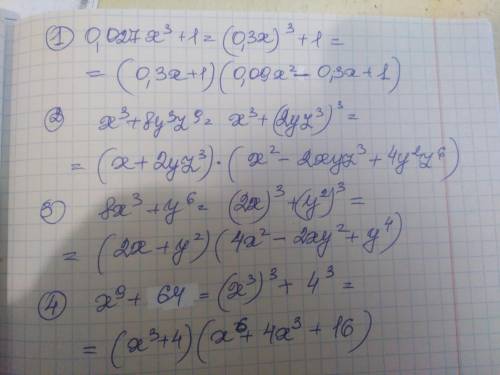 ① 0,027x³+1 = (0,3x)³+1 =
= (0,3x+1)(0,09x²-0,3x+1)
② x³+8y³z⁹ = x³+(2yz³)³ =
= (x+2yz³)·(x²-2xyz³+4y²z⁶)
③ 8x³+y⁶ = (2x)³+(y²)³ =
= (2x+y²)(4x²-2xy²+y⁴)
④ x⁹+64 = (x³)³+4³ =
= (x³+4)(x⁶+4x³+16)